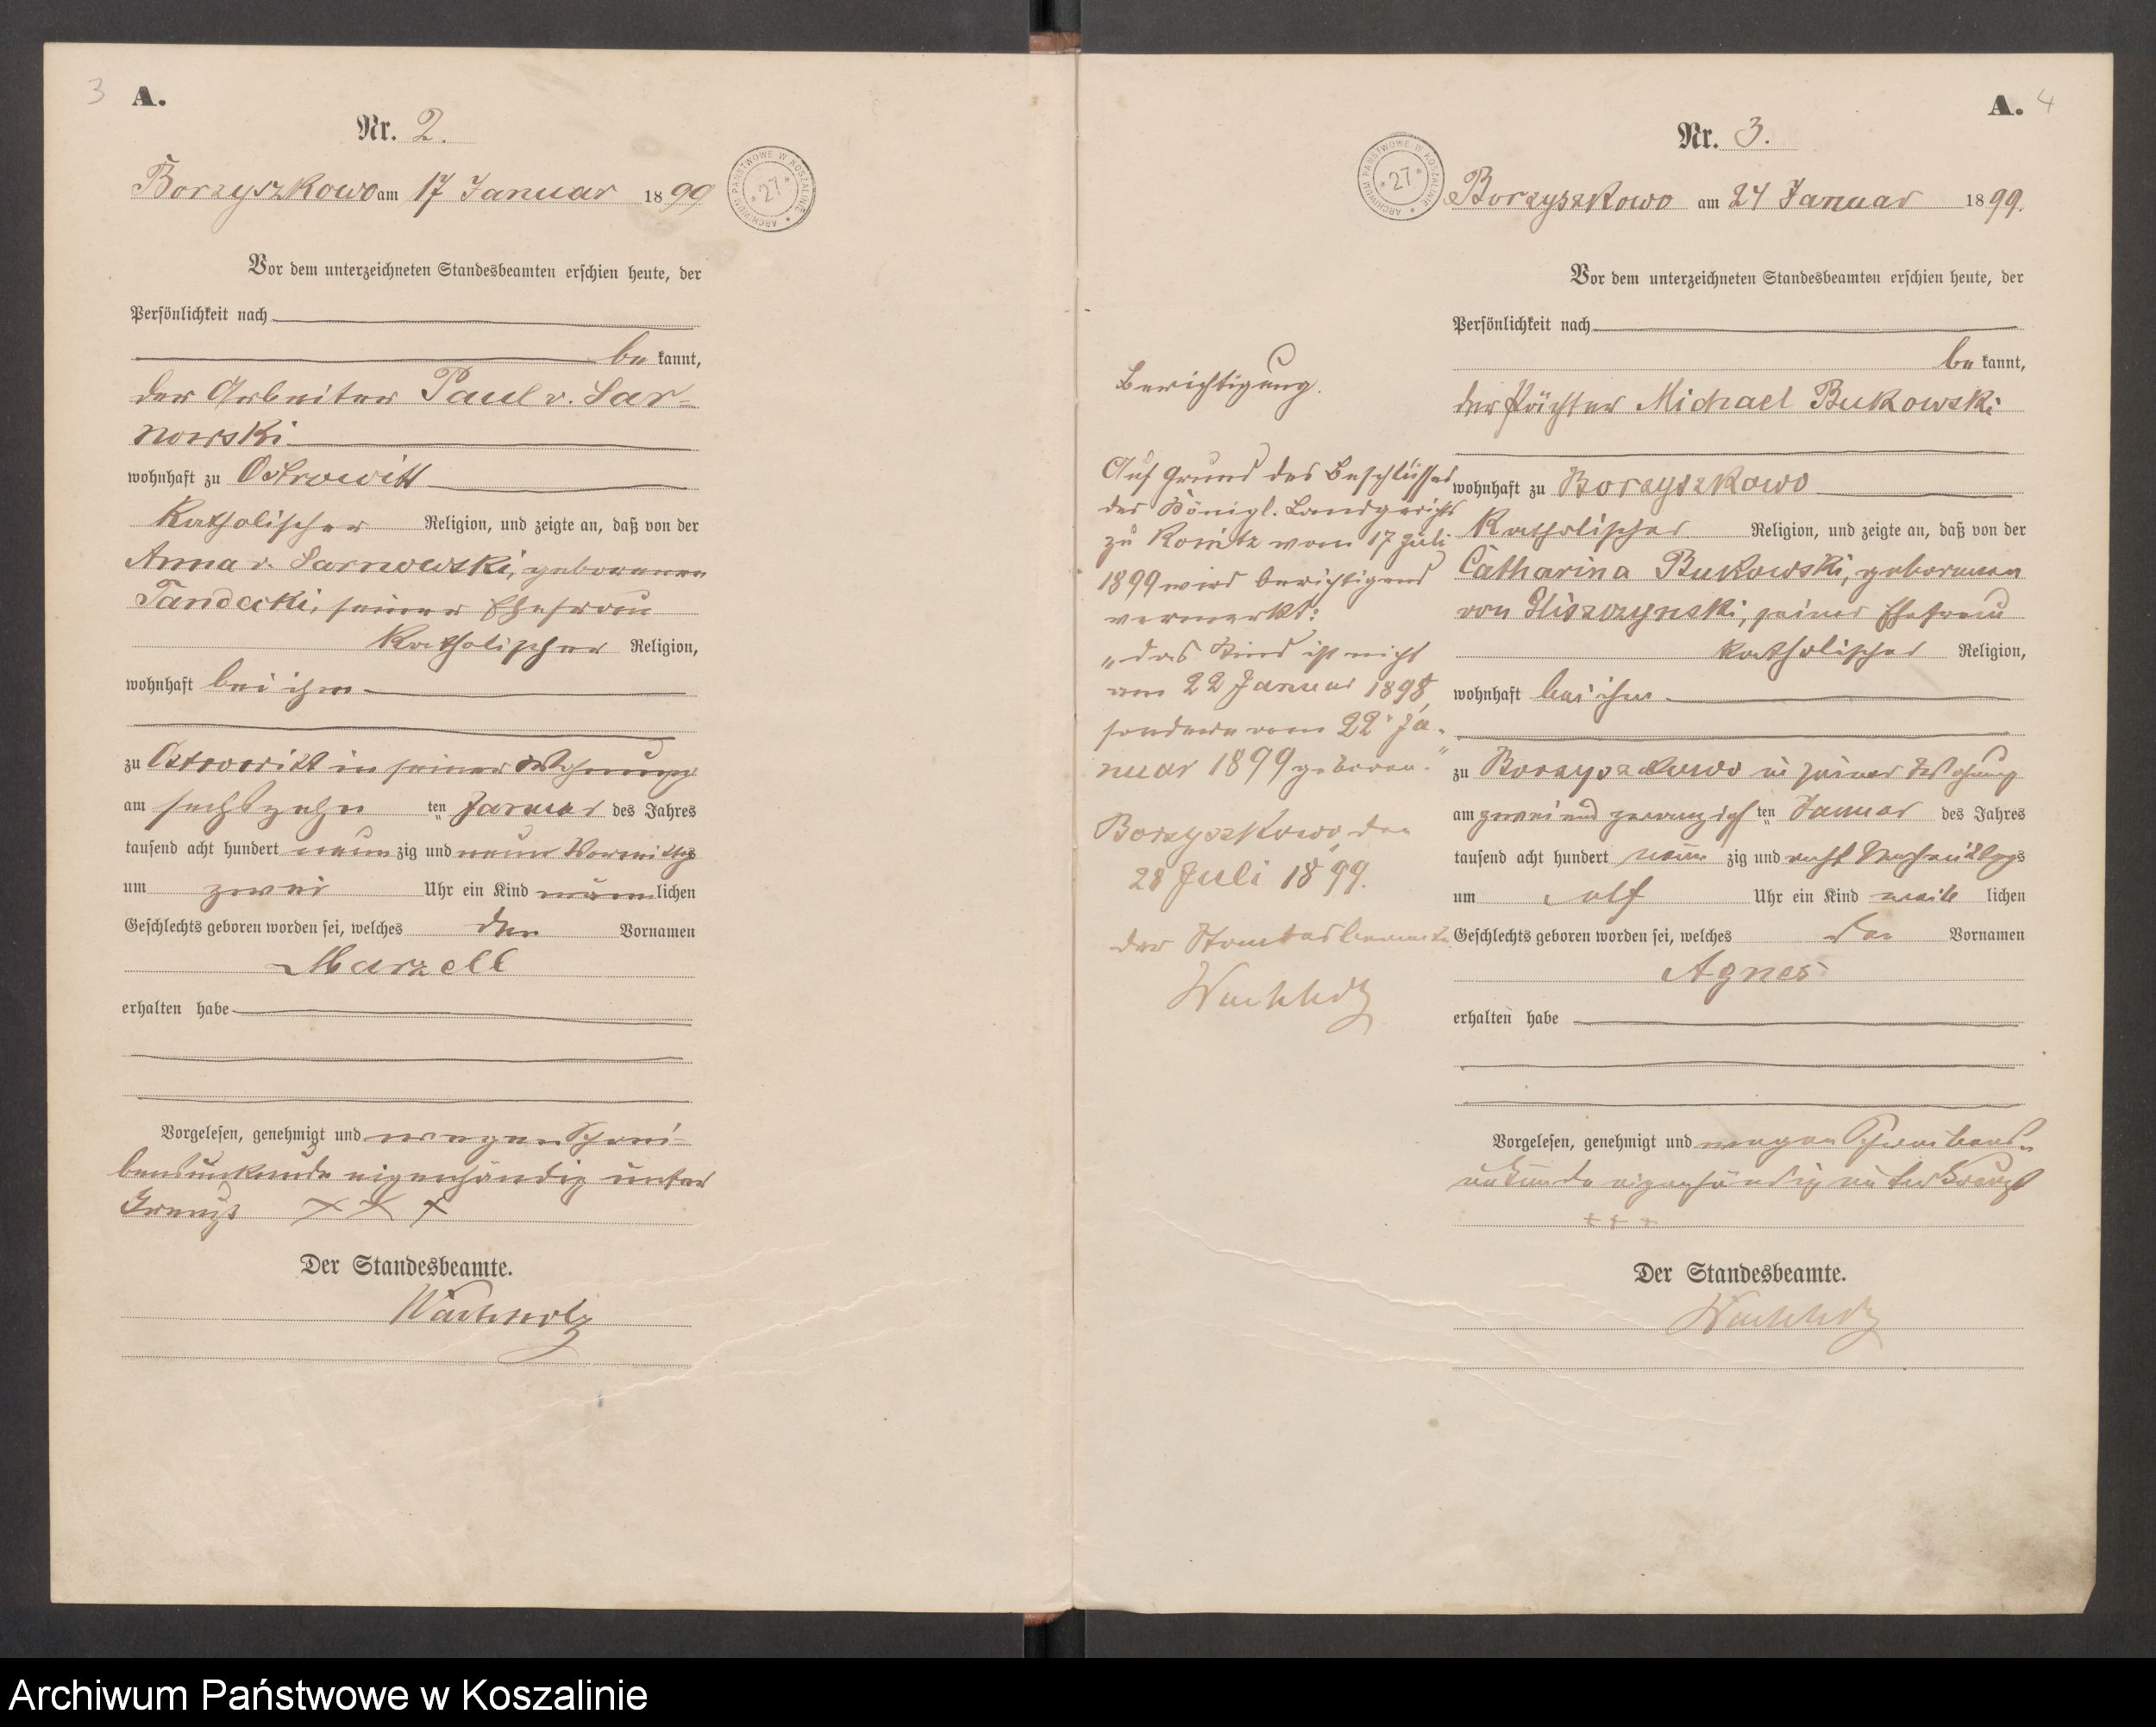 3
A.
Nr. 2.
Borzyszkowo am 17 Januar 1899
ARCHIWUM PAŃSTWOWE W KOSZALINIE
* 27 *
Vor dem unterzeichneten Standesbeamten erschien heute, der
Persönlichkeit nach
be kannt,
der Arbeiter Paul v. Sar-
nowski
wohnhaft zu Ostrowitt
katholischer Religion, und zeigte an, daß von der
Anna v. Sarnowski, geborenen
Tandecki, seiner Ehefrau
katholischer Religion,
wohnhaft bei ihm
zu Ostrowitt in seiner Wohnung
am sechszehn ten Januar des Jahres
tausend acht hundert neun zig und neun Vormittags
um zwei Uhr ein Kind männlichen
Geschlechts geboren worden sei, welches den Vornamen
Marzell
erhalten habe
Vorgelesen, genehmigt und wegen Schrei-
bensunkunde eigenhändig unter
Kreuzt + + +
Der Standesbeamte.
Wachholz
A. 4
Nr. 3.
ARCHIWUM PAŃSTWOWE W KOSZALINIE
* 27 *
Borzyszkowo am 24 Januar 1899.
Vor dem unterzeichneten Standesbeamten erschien heute, der
Persönlichkeit nach
be kannt,
der Pächter Michael Bukowski
wohnhaft zu Borzyszkowo
katholischer Religion, und zeigte an, daß von der
Catharina Bukowski, geborenen
von, seiner Ehefrau
katholischer Religion,
wohnhaft bei ihm
zu Borzyszkowo in seiner Wohnung
am zwei und zwanzigsten Januar des Jahres
tausend acht hundert neun zig und acht Nachmittags
um elf Uhr ein Kind weib lichen
Geschlechts geboren worden sei, welches den Vornamen
Agnes
erhalten habe
Vorgelesen, genehmigt und wegen Schreibens-
unkunde eigenhändig unterkreuzt
+ + +
Der Standesbeamte.
Wachholz
Berichtigung.
Auf Grund des Beschlusses
des Königl. Landgerichts
zu Konitz vom 17 Juli
1899 wird berichtigend
vermerkt:
„das Kind ist nicht
am 22 Januar 1898,
sondern am 22. Ja-
nuar 1899 geboren."
Borzyszkowo, den
28 Juli 1899.
der Standesbeamte
Wachholz
Archiwum Państwowe w Koszalinie